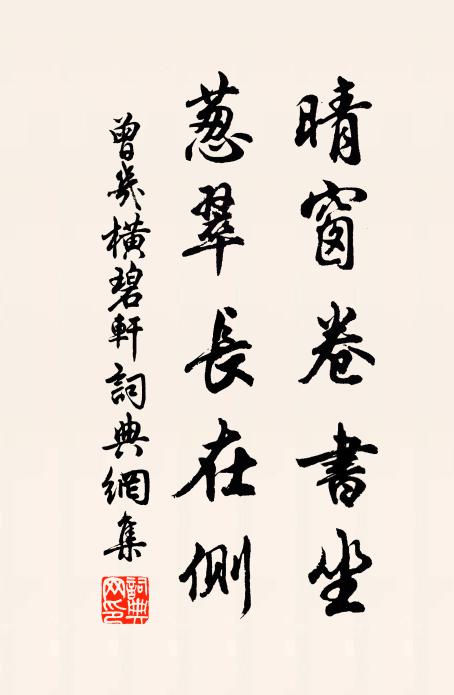 晴窗卷書坐
葱翠長在側
曾幾橫碧軒詞典網集
詞典網印